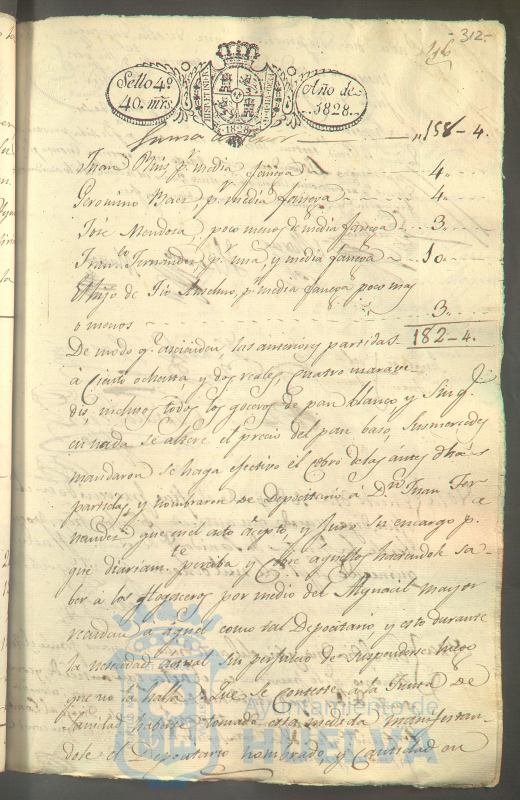 -312-
116
Sello 4º
40. mrs.
HISPET INDIA
1828
Año de
1828.
Suma anterior " 158 - 4.
Juan Ruiz pr. media fanega 4"
Geronimo Baez pr. media fanega 4"
José Mendoza, poco menos de media fanega 3"
Franco Fernandez pr. una y media fanega 10"
El hijo de Tio Anselmo, pr. media fanega poco mas
o menos 3"
182 - 4.
De modo qe. ascienden las anteriores partidas
á Ciento ochenta y dos reales Cuatro marave
dis, inclusos todos los goceros de pan blanco y Sin qe.
en nada se altere el precio del pan bajo, Sus mercedes
mandaron se haga efectivo el cobro de las antes dhas
partidas, y nombraron de Depositario á Dn. Juan Fer
nandez que en el acto acepto, y Juro su encargo pa
que diariamte perciba y Cobre aquellos haciendole sa-
ber á los por medio del Alguacil mayor
á aquel como tal Depositario, y esto durante
la necesidad actual Sin perjuicio de Suspenderse luego
que no la halla que se conteste á la Junta de
Sanidad haberse tomado esta medida manifestan-
dole el Depositario nombrado, y Cantidad en
Ayuntamiento de
HUELVA